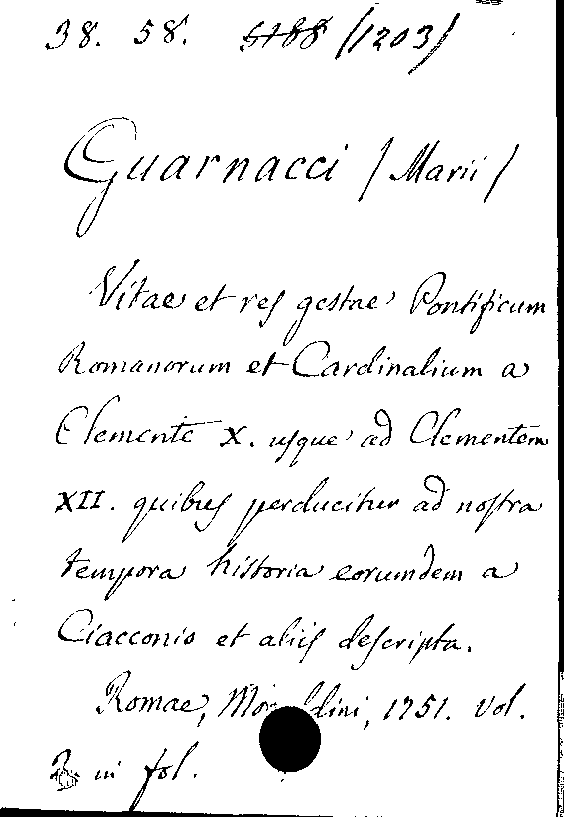 38. 58. 5188 (1203)
Guarnacci (Marii)
Vitae et res gestae Pontificum
Romanorum et Cardinalium a
Clemente X. usque ad Clementem
XII. quibus perducitur ad nostra
tempora historia eorumdem a
Ciacconio et aliis descripta.
Romae, 1751. vol.
2 in fol.